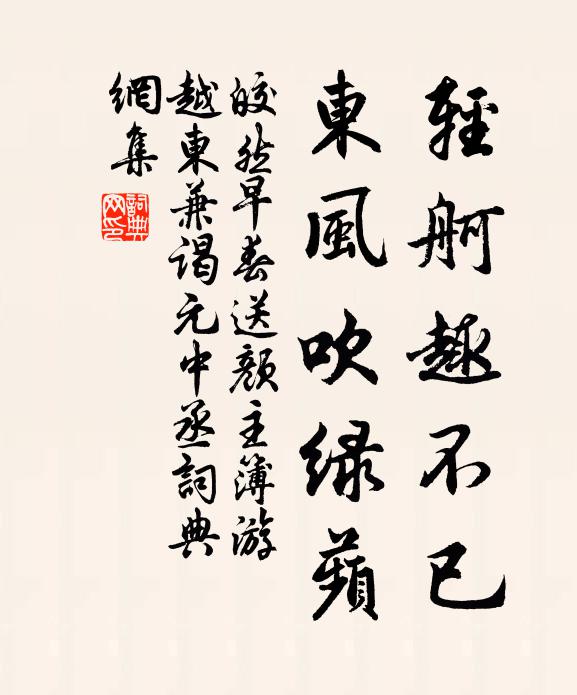 輕舸趣不已
東風吹緑蘋
皎然早春送顏主簿游
越東兼謁元中丞詞典
網集
詞典网印